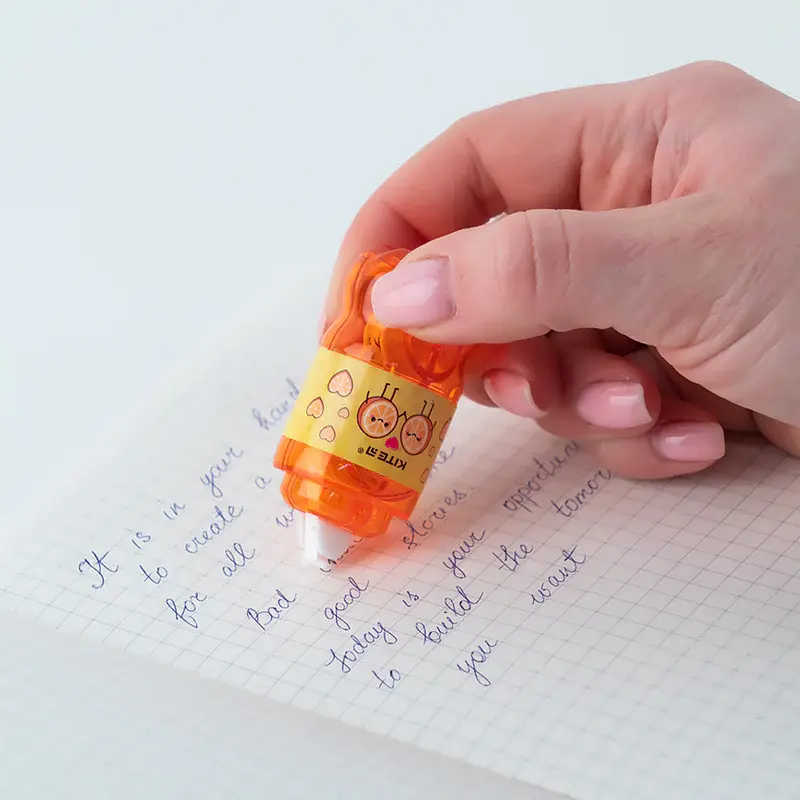 It is in your hand
to create a
for all
Bad
good stories.
Today is your opportun
to build the tomor
you want
KITE